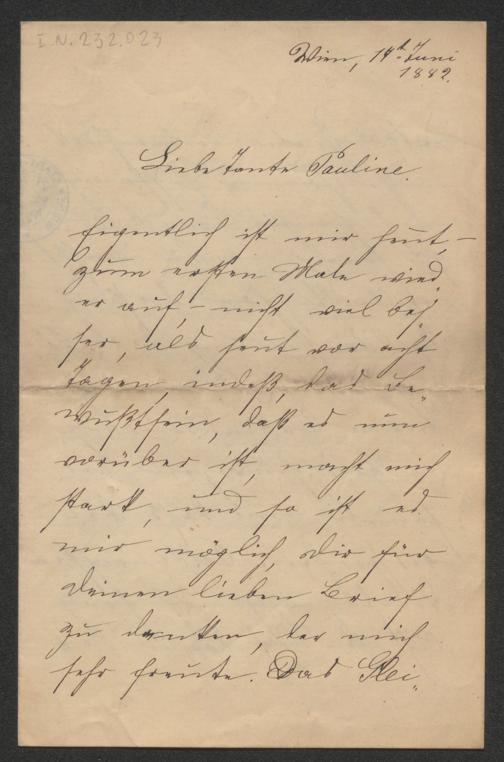 I.N. 232.023
Wien, 14t Juni
1882.
Liebe Tante Pauline.
Eigentlich ist mir heut, –
zum ersten Male wied„
er auf, – nicht viel bes„
ser, als heut vor acht
Tagen, indeß, das Be„
wußtsein, daß es nun
vorüber ist, macht mich
stark, und so ist es
mir möglich, Dir für
Deinen lieben Brief
zu danken, der mich
sehr freute. Das Glei„